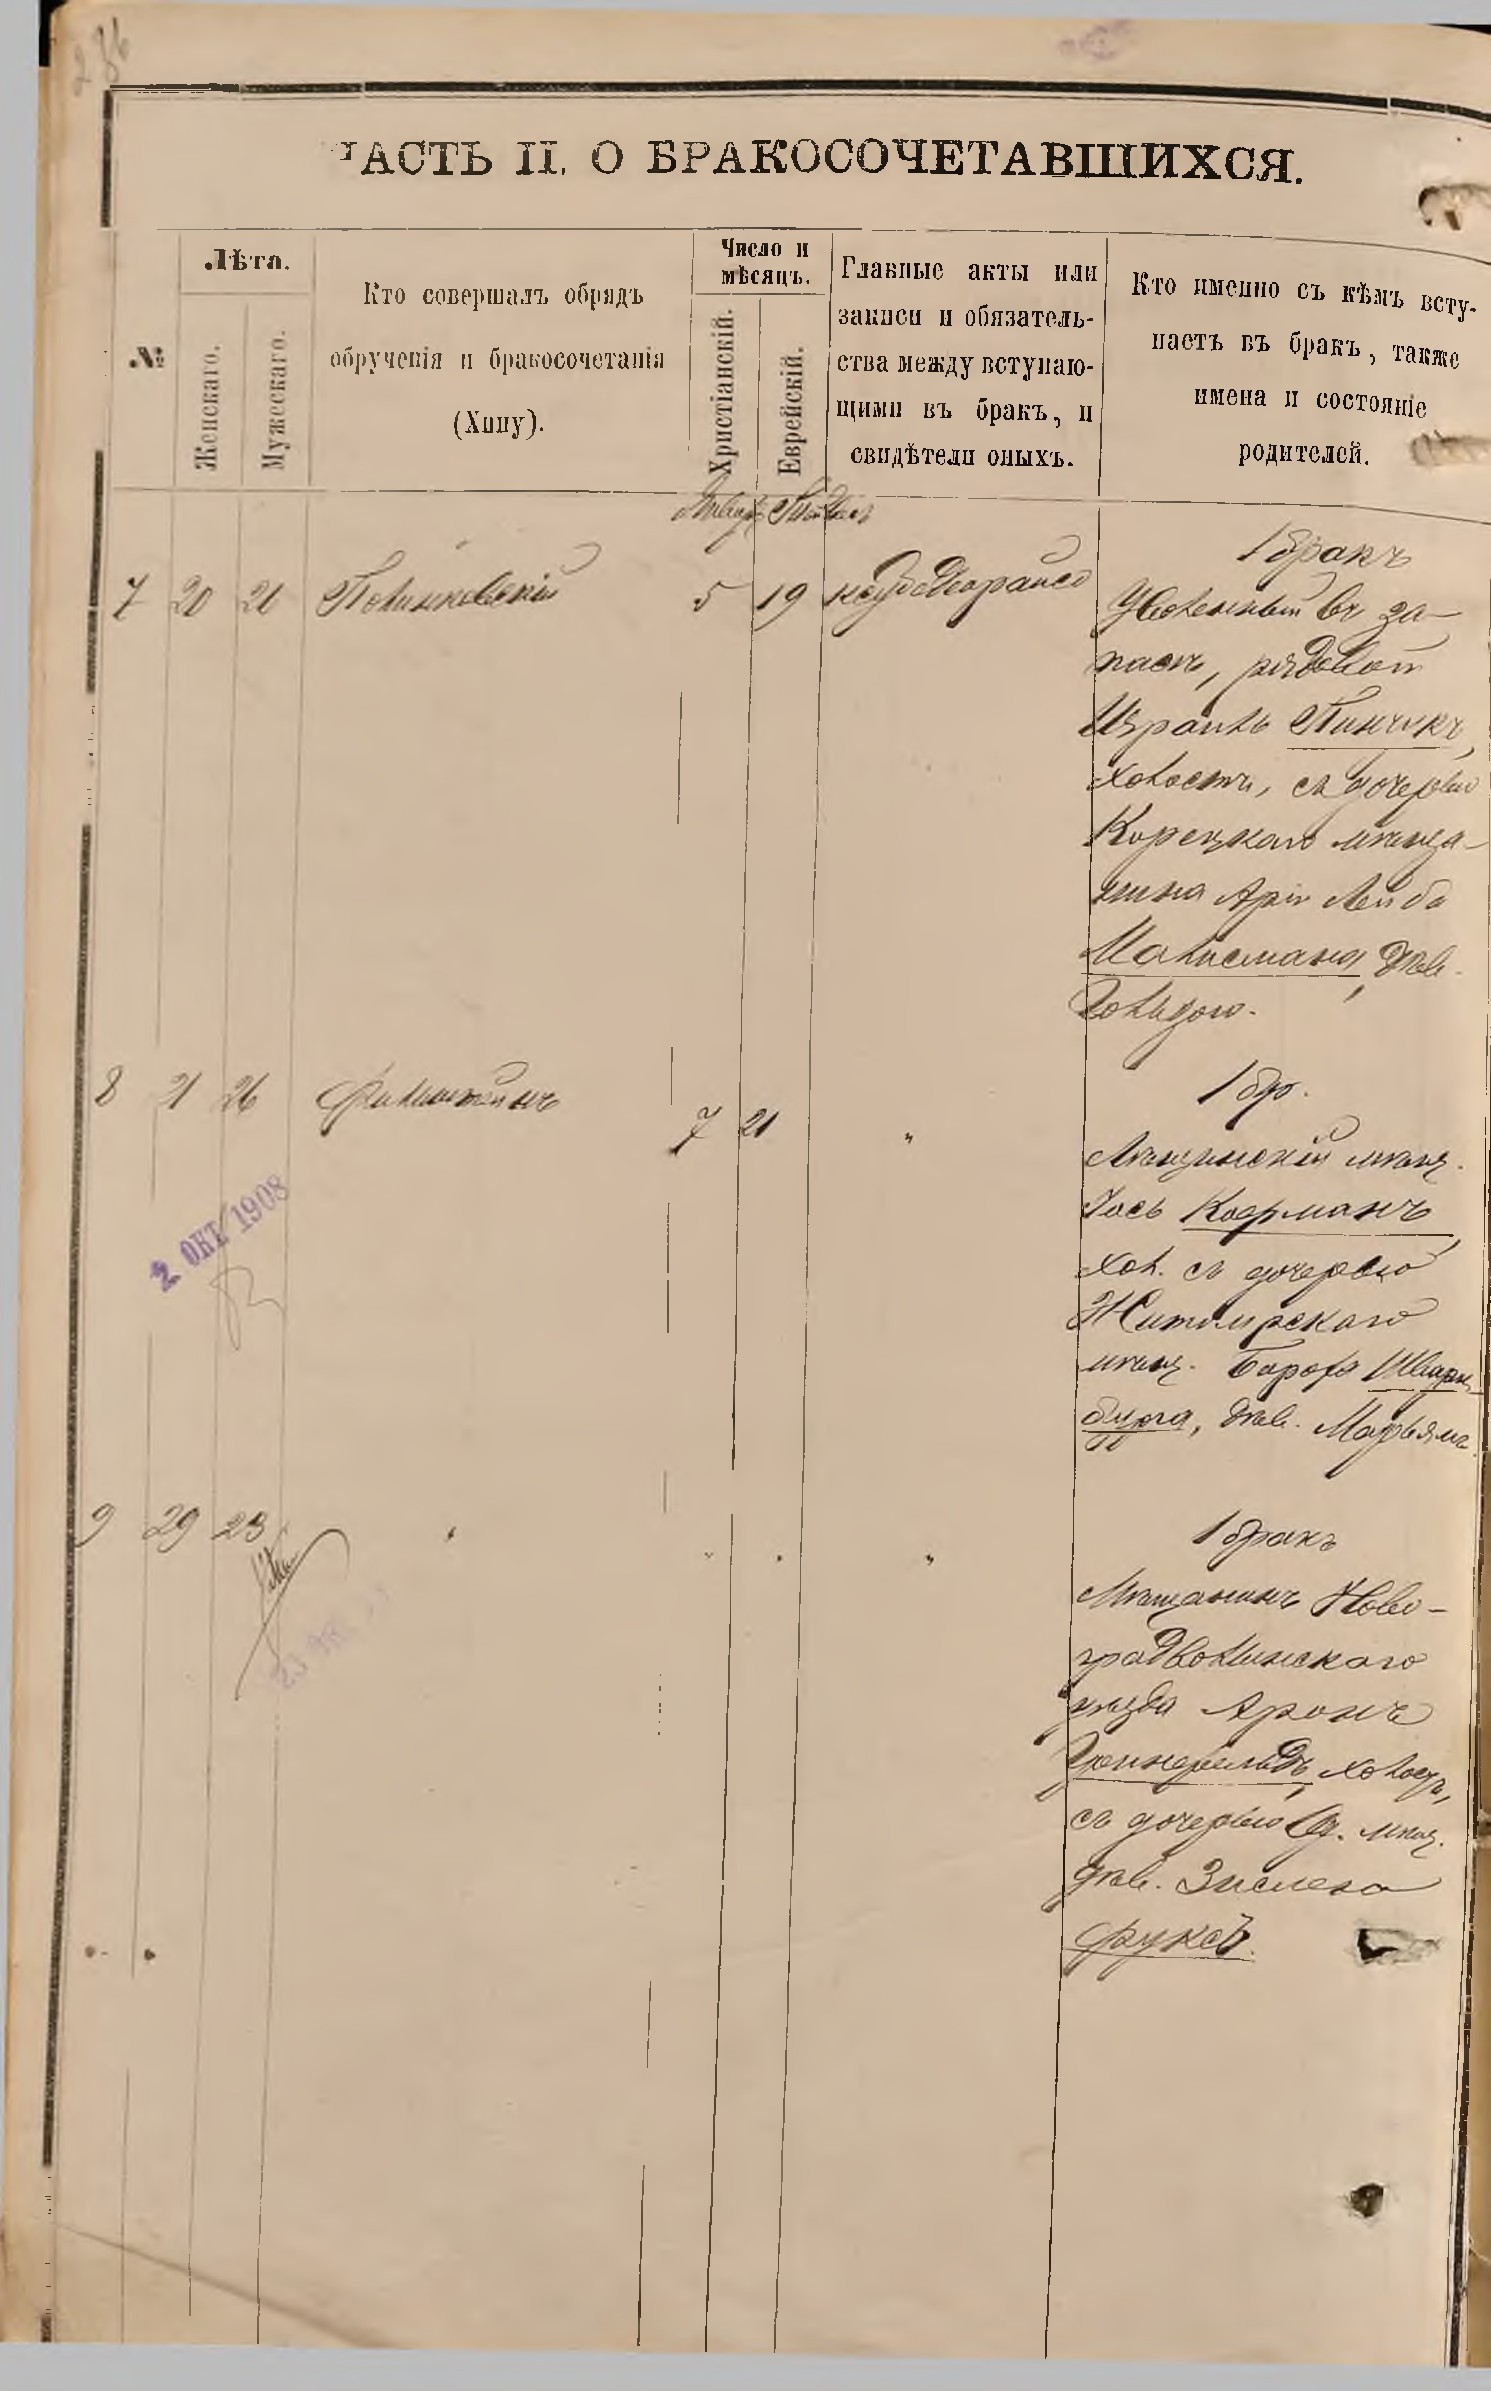 236
ЧАСТЬ II. О БРАКОСОЧЕТАВШИХСЯ.
№
Лѣта.
Женскаго.
Мужескаго.
Кто совершалъ обрядъ
обрученія и бракосочетанія
(Хипу).
Число и
мѣсяцъ.
Христіанскій.
Еврейскій.
Главные акты или
записи и обязатель-
ства между вступаю-
щими въ бракъ, и
свидѣтели оныхъ.
Кто именно съ кѣмъ всту-
паетъ въ бракъ, также
имена и состояніе
родителей.
Январь
7 20 21 5 19
1 бракъ
Уволенный въ за-
пасъ, рядовой
Израиль Пинчукъ,
холостъ, съ дочерью
Корецкаго мѣща-
нина Арія Лейба
Малисмана, дѣв.
Голидою.
8 21 26 Финкштейнъ 7 21 "
1 бр.
мѣщ.
Іось Коерманъ,
хол. съ дочерью
Житомирскаго
мѣщ. Бороха Шварц-
бурга, дѣв. Марьямъ.
2 ОКТ 1908
9 29 23 " " " "
1 бракъ
Мѣщанинъ Ново-
градволынскаго
уѣзда Аронъ
Гринфельдъ, холостъ,
съ дочерью мѣщ.
дѣв. Зислею
Фуксъ.